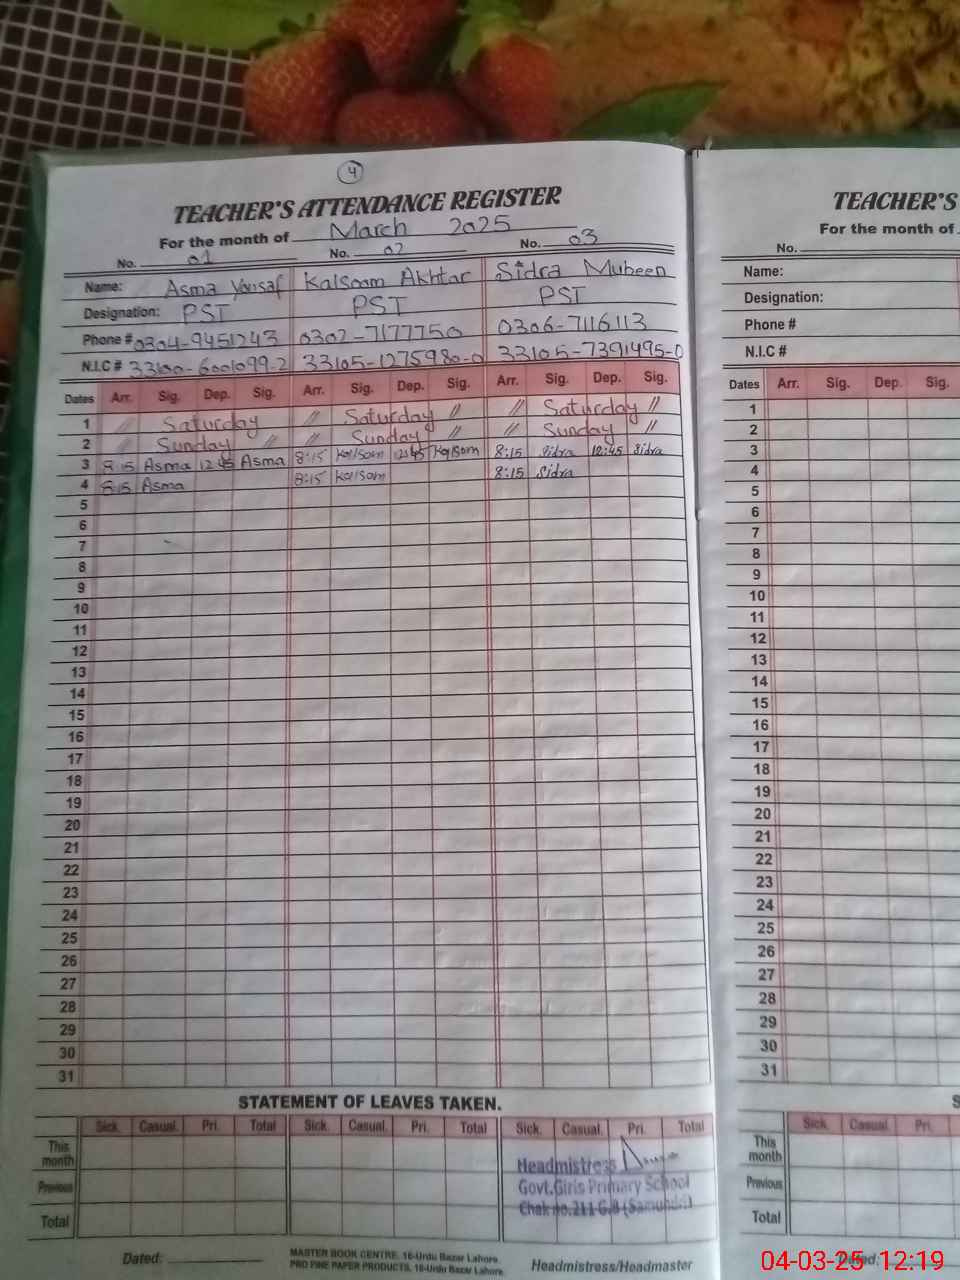 4
TEACHER'S ATTENDANCE REGISTER
For the month of March 2025
No. 01 No. 02 No. 03
Name: Asma Yousaf Kalsoom Akhtar Sidra Mubeen
Designation: PST PST PST
Phone # 0304-9451243 0302-7177750 0306-7116113
N.I.C # 33100-6001099-2 33105-1275980-0 33105-7391495-0
Dates Arr. Sig. Dep. Sig. Arr. Sig. Dep. Sig. Arr. Sig. Dep. Sig.
1 // Saturday // Saturday // // Saturday //
2 // Sunday // // Sunday // // Sunday //
3 8:15 Asma 12:45 Asma 8:15 Kalsom 12:45 Kalsom 8:15 Sidra 12:45 Sidra
4 8:15 Asma 8:15 Kalsom 8:15 Sidra
5
6
7
8
9
10
11
12
13
14
15
16
17
18
19
20
21
22
23
24
25
26
27
28
29
30
31
STATEMENT OF LEAVES TAKEN.
Sick. Casual. Pri. Total Sick. Casual. Pri. Total Sick. Casual. Pri. Total
This month
Previous
Total
Headmistress
Govt.Girls Primary School
Chak no.211 G.B (Samundri)
Dated:
MASTER BOOK CENTRE. 16-Urdu Bazar Lahore.
PRO FINE PAPER PRODUCTS. 16-Urdu Bazar Lahore.
Headmistress/Headmaster
TEACHER'S
For the month of
No.
Name:
Designation:
Phone #
N.I.C #
Dates Arr. Sig. Dep. Sig.
1
2
3
4
5
6
7
8
9
10
11
12
13
14
15
16
17
18
19
20
21
22
23
24
25
26
27
28
29
30
31
S
Sick. Casual. Pri.
This month
Previous
Total
Dated:
04-03-25 12:19